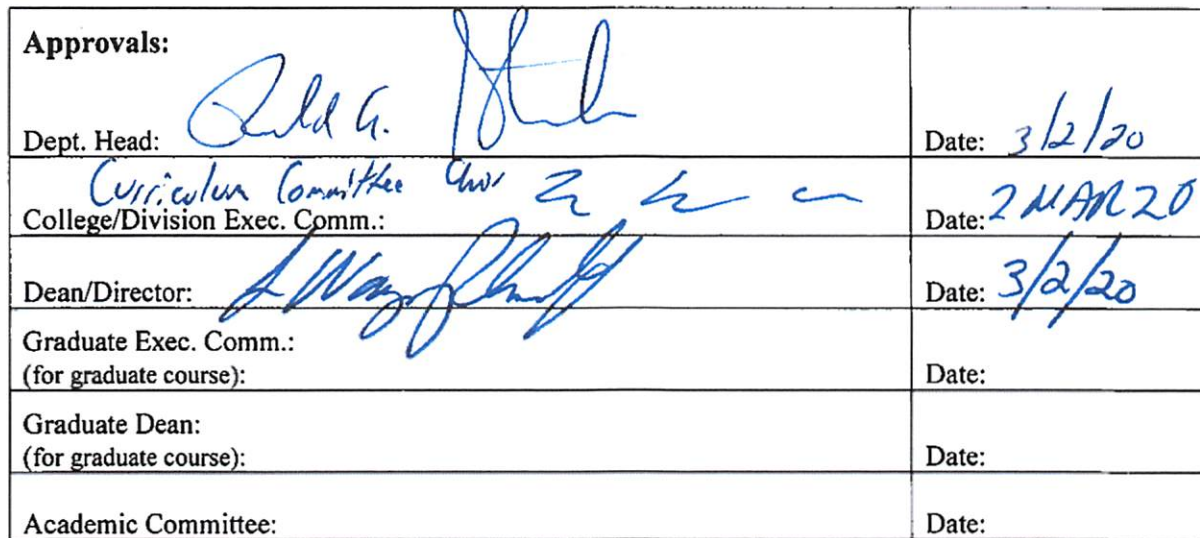 Approvals:
Dept. Head: Date: 3/2/20
Curriculum Committee Chair
College/Division Exec. Comm.: Date: 2 MAR 20
Dean/Director: Date: 3/2/20
Graduate Exec. Comm.:
(for graduate course): Date:
Graduate Dean:
(for graduate course): Date:
Academic Committee: Date: